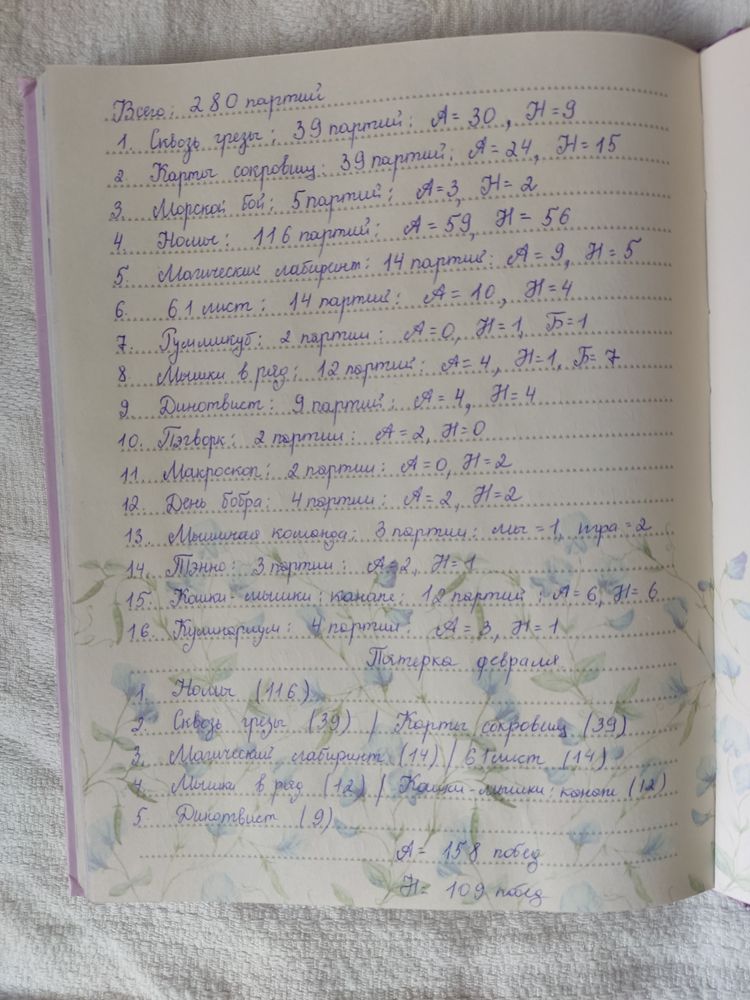 Всего: 280 партий
1. Сквозь грезы: 39 партий: А=30, Н=9
2. Карты сокровищ: 39 партий: А=24, Н=15
3. Морской бой: 5 партий: А=3, Н=2
4. Номы: 116 партий: А=59, Н=56
5. Магический лабиринт: 14 партий: А=9, Н=5
6. 61 лист: 14 партий: А=10, Н=4
7. Руммикуб: 2 партии: А=0, Н=1, Б=1
8. Мышки в ряд: 12 партий: А=4, Н=1, Б=7
9. Динотвист: 9 партий: А=4, Н=4
10. Пэчворк: 2 партии: А=2, Н=0
11. Макроскоп: 2 партии: А=0, Н=2
12. День бобра: 4 партии: А=2, Н=2
13. Мышиная команда: 3 партии: мы=1, игра=2
14. Тэнно: 3 партии: А=2, Н=1
15. Кошки-мышки: канапе: 12 партий: А=6, Н=6
16. Кулинариум: 4 партии: А=3, Н=1
Пятерка февраля
1. Номы (116)
2. Сквозь грезы (39) / Карты сокровищ (39)
3. Магический лабиринт (14) / 61 лист (14)
4. Мышки в ряд (12) / Кошки-мышки: канапе (12)
5. Динотвист (9)
А= 158 побед
Н= 109 побед